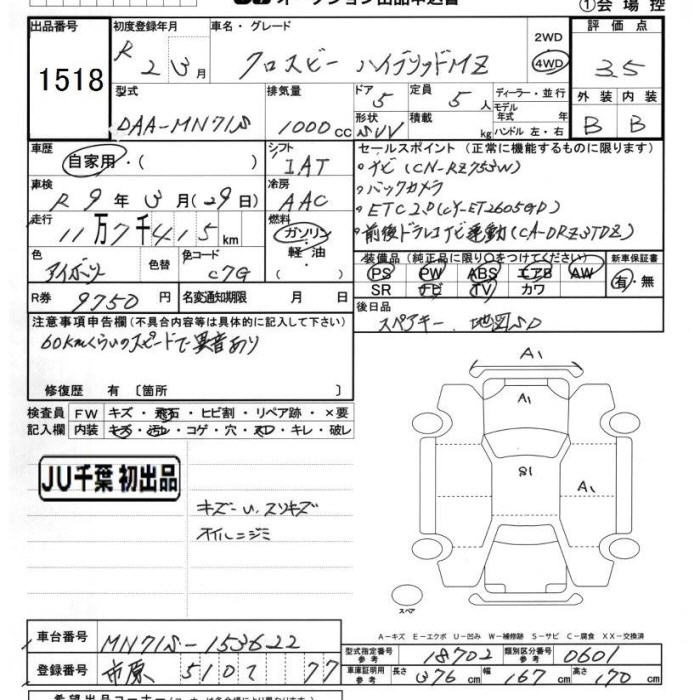 ①会場控
出品番号
1518
初度登録年月
R 2年3月
車名・グレード
クロスビー ハイブリッドMZ
2WD
4WD
評価点
3.5
型式
DAA-MN71S
排気量
1000cc
ドア
5
定員
5人
形状
SUV
積載
kg
ディーラー・並行
モデル年式 年
ハンドル 左・右
外装 内装
B B
車歴
自家用・( )
シフト
IAT
車検
R 9年3月(29日)
冷房
AAC
走行
11万7千415km
燃料
ガソリン
軽・油
色
アイボリー
色替
色コード
C7G
R券
9750円
名変通知期限 月 日
セールスポイント(正常に機能するものに限ります)
・ナビ(CN-RZ753W)
・バックカメラ
・ETC2.0(CY-ET2605GD)
・前後ドラレコナビ連動(CA-DR03TDZ)
装備品(純正品に限り○をつけてください)
PS PW ABS エアB AW
SR ナビ TV カワ
新車保証書
有・無
後日品
スペアキー、地図SD
注意事項申告欄(不具合内容等は具体的に記入して下さい)
60kmくらいのスピードで異音あり
修復歴 有〔箇所
検査員 FW キズ・飛石・ヒビ割・リペア跡・×要
記入欄 内装 キズ・汚レ・コゲ・穴・スレ・キレ・破レ
JU千葉 初出品
キズーU、スリキズ
オイルニジミ
A1
A1
S1
A1
スペア
A-キズ E-エクボ U-凹み W-補修跡 S-サビ C-腐食 XX-交換済
車台番号
MN71S-153622
登録番号
市原 510 て 77
型式指定番号
参考
18702
類別区分番号
参考
0601
車庫証明用
参考
長さ
376cm
幅
167cm
高さ
170cm